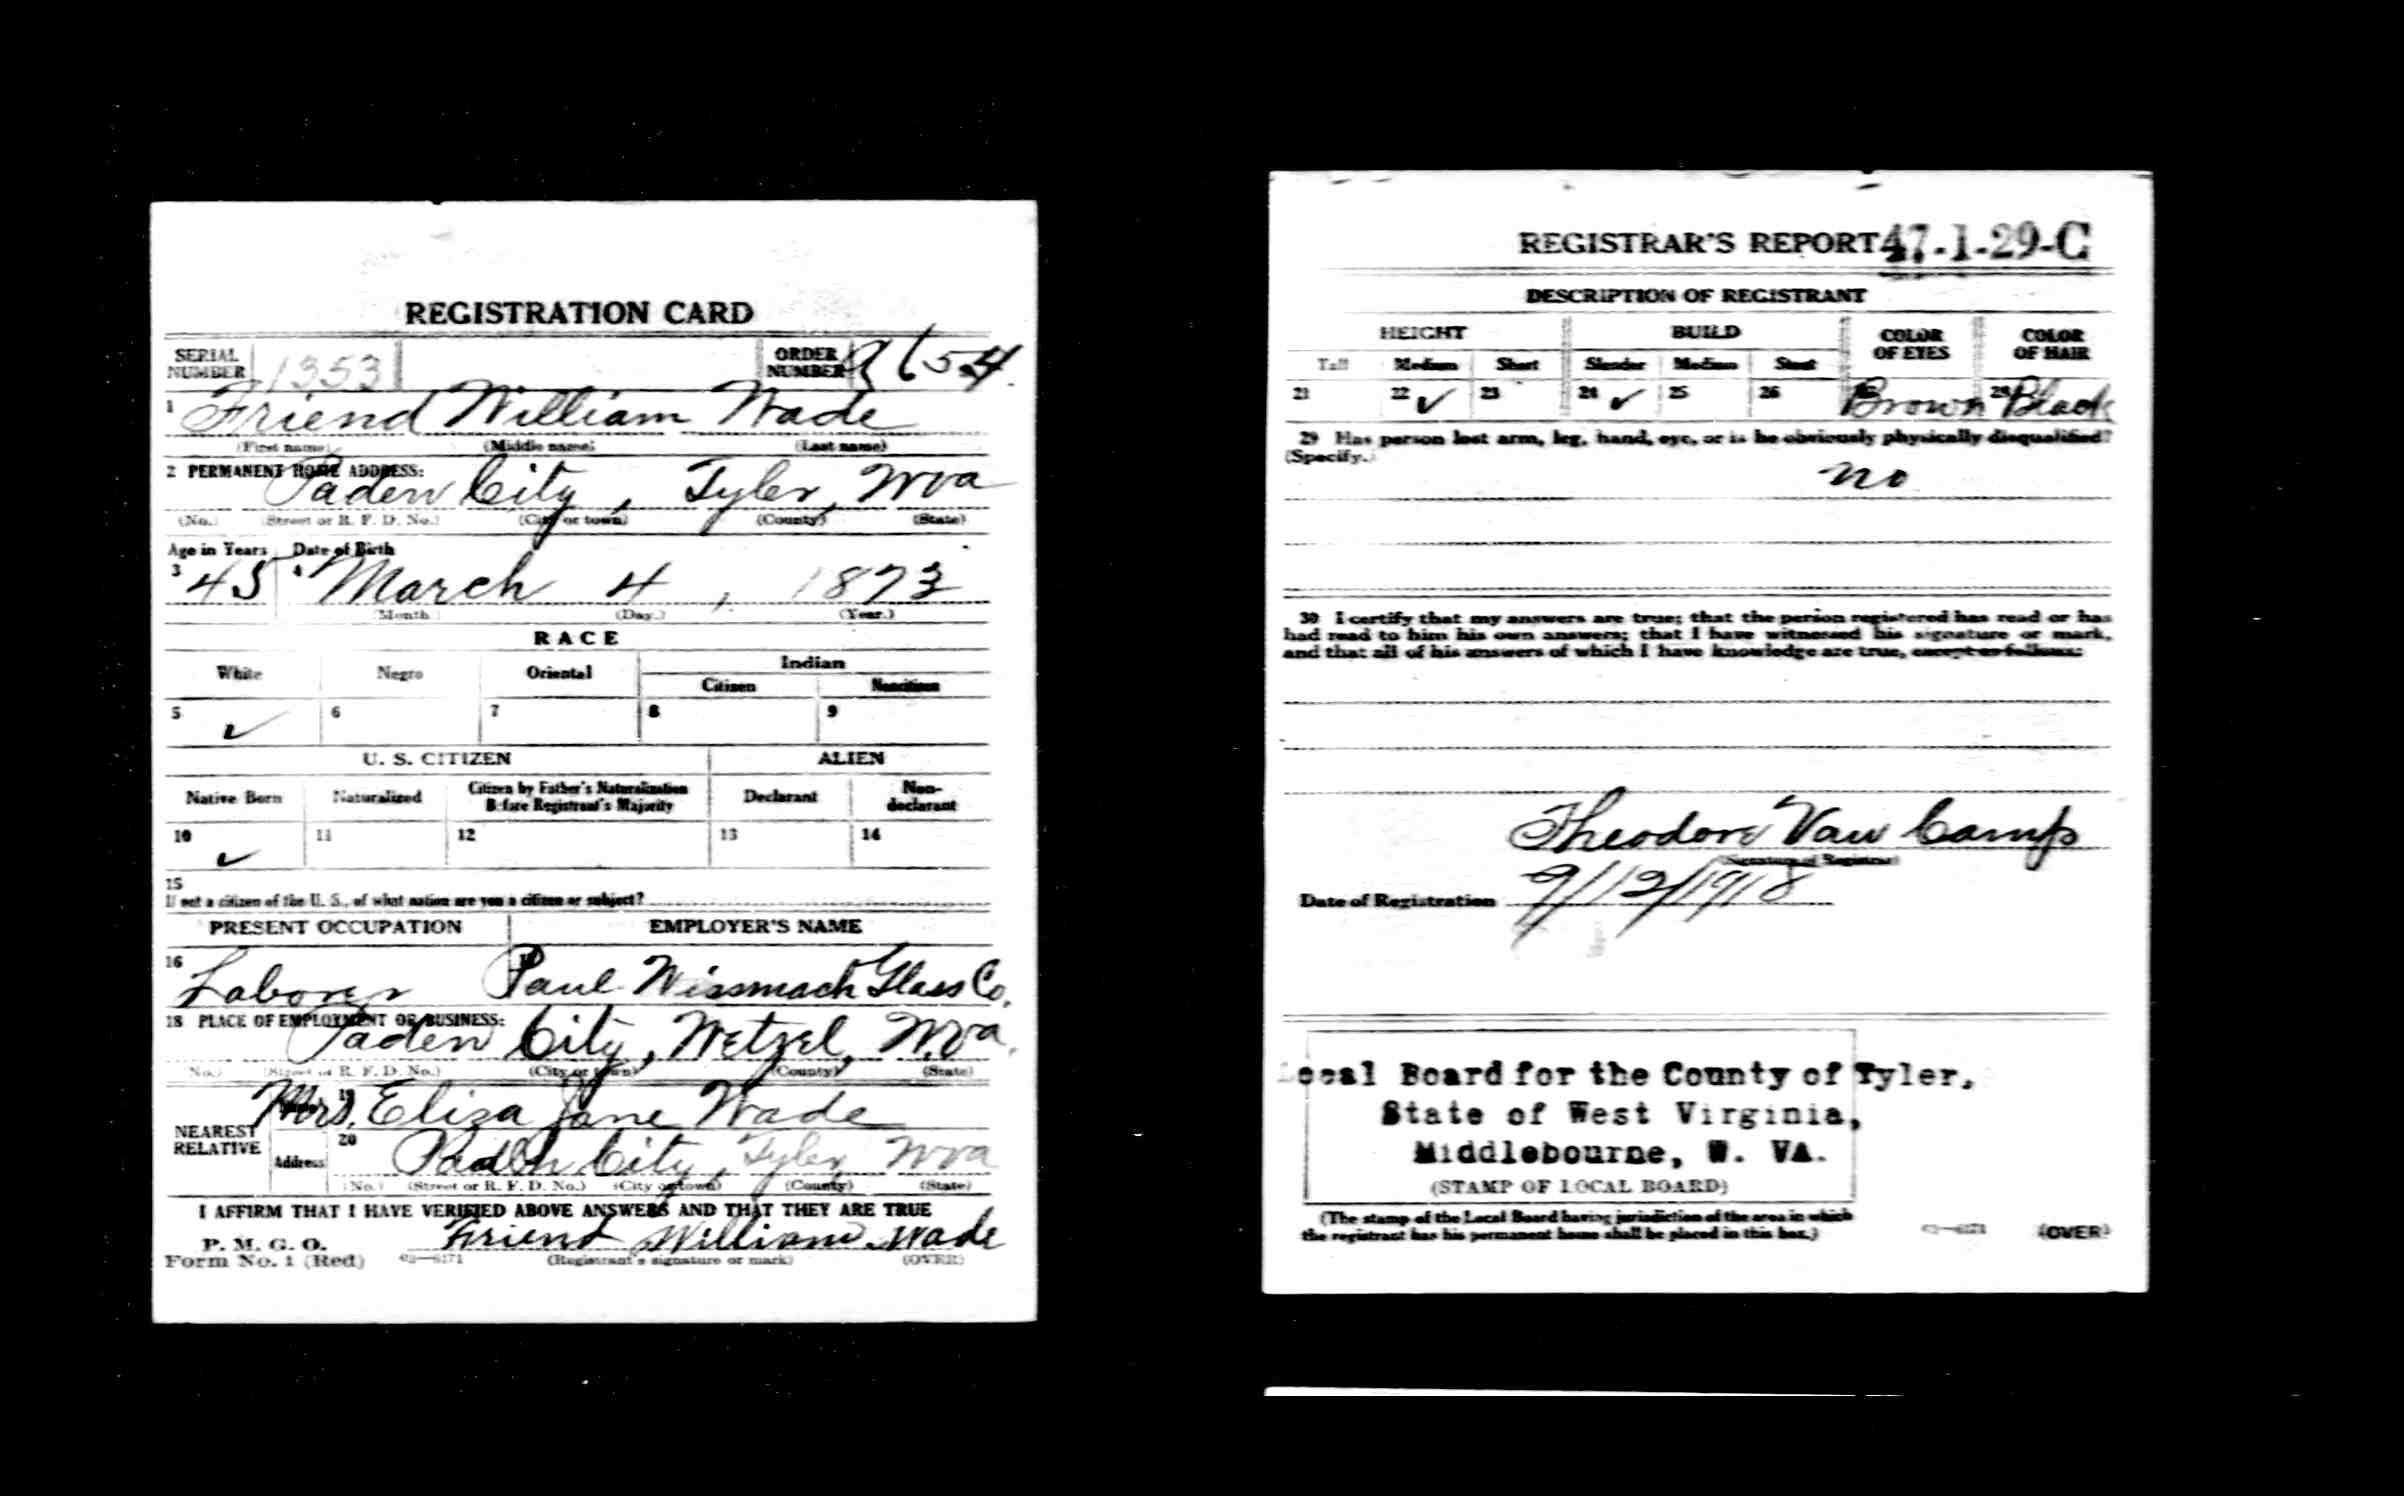 REGISTRATION CARD
SERIAL NUMBER 1353 ORDER NUMBER
1 Friend William Wade
(First name) (Middle name) (Last name)
2 PERMANENT HOME ADDRESS:
Paden City, Tyler, Wva
(No.) (Street or R. F. D. No.) (City or town) (County) (State)
Age in Years Date of Birth
3 45 4 March 4, 1873
(Month) (Day.) (Year.)
RACE
White Negro Oriental Indian
Citizen Noncitizen
5 ✓ 6 7 8 9
U. S. CITIZEN ALIEN
Native Born Naturalized Citizen by Father's Naturalization Before Registrant's Majority Declarant Non-declarant
10 ✓ 11 12 13 14
15
If not a citizen of the U. S., of what nation are you a citizen or subject?
PRESENT OCCUPATION EMPLOYER'S NAME
16 Laborer Paul Wissmach Glass Co.
18 PLACE OF EMPLOYMENT OR BUSINESS:
Paden City, Wetzel, W.Va.
(No.) (Street or R. F. D. No.) (City or town) (County) (State)
NEAREST RELATIVE
19 Mrs. Eliza Jane Wade
Address 20 Paden City, Tyler, Wva
(No.) (Street or R. F. D. No.) (City or town) (County) (State)
I AFFIRM THAT I HAVE VERIFIED ABOVE ANSWERS AND THAT THEY ARE TRUE
P. M. G. O.
Form No. 1 (Red) Friend William Wade
(Registrant's signature or mark) (OVER)
REGISTRAR'S REPORT 47-1-29-C
DESCRIPTION OF REGISTRANT
HEIGHT BUILD COLOR OF EYES COLOR OF HAIR
Tall Medium Short Slender Medium Stout
21 22 ✓ 23 24 ✓ 25 26 Brown 28 Black
29 Has person lost arm, leg, hand, eye, or is he obviously physically disqualified?
(Specify.)
no
30 I certify that my answers are true; that the person registered has read or has
had read to him his own answers; that I have witnessed his signature or mark,
and that all of his answers of which I have knowledge are true, except as follows:
Theodore Van Camp
(Signature of Registrar)
Date of Registration 9/12/1918
Local Board for the County of Tyler,
State of West Virginia,
Middlebourne, W. VA.
(STAMP OF LOCAL BOARD)
(The stamp of the Local Board having jurisdiction of the area in which
the registrant has his permanent home shall be placed in this box.)
(OVER)